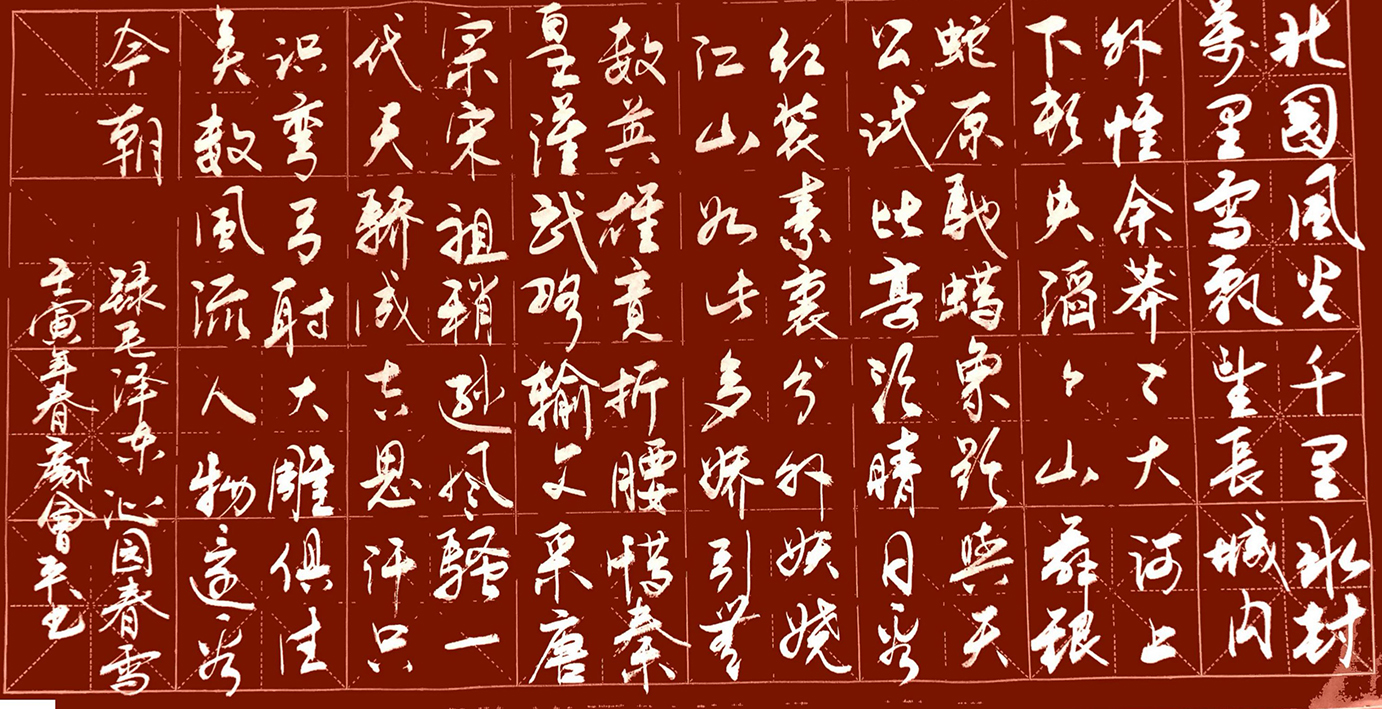 北國風光千里冰封
萬里雪飘望長城内
外惟余莽々大河上
下顿失滔々山舞银
蛇原驰蜡象欲與天
公试比高须晴日看
红装素裹分外妖娆
江山如此多娇引無
数英雄竟折腰惜秦
皇漢武略输文采唐
宗宋祖稍逊风骚一
代天骄成吉思汗只
识弯弓射大雕俱往
矣数風流人物還看
今朝
録毛泽东沁园春雪
壬寅年春廖會平书